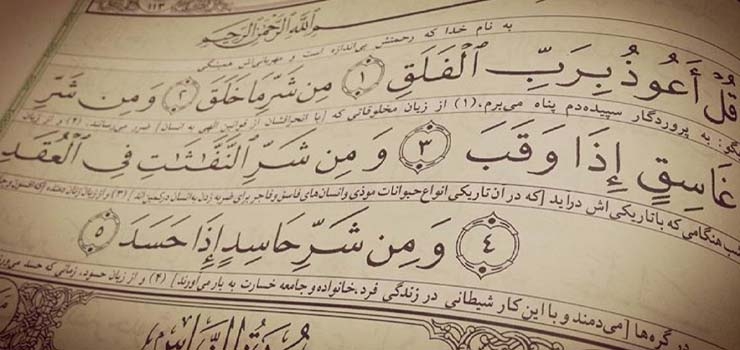 ۱۱۳
بِسْمِ ٱللَّهِ ٱلرَّحْمَٰنِ ٱلرَّحِيمِ
به نام خدا که رحمتش بی‌اندازه است و مهربانی‌اش همیشگی
قُلْ أَعُوذُ بِرَبِّ ٱلْفَلَقِ ١ مِن شَرِّ مَا خَلَقَ ٢ وَمِن شَرِّ
بگو: به پروردگار سپیده‌دم پناه می‌برم. (۱) از زیان مخلوقاتی که [با انحرافشان از قوانین الهی به انسان] ضرر می‌رسانند. (۲) و از زیان
غَاسِقٍ إِذَا وَقَبَ ٣ وَمِن شَرِّ ٱلنَّفَّٰثَٰتِ فِى ٱلْعُقَدِ
شب هنگامی که با تاریکی‌اش درآید [که در آن تاریکی انواع حیوانات موذی و انسان‌های فاسق و فاجر برای ضربه زدن به انسان در کمین‌اند] (۳) و از زیان زنان دمنده [که افسون و
٤ وَمِن شَرِّ حَاسِدٍ إِذَا حَسَدَ ٥
در گره‌ها [می‌دمند و با این کار شیطانی در زندگی فرد، خانواده و جامعه خسارت به بار می‌آورند] (۴) و از زیان حسود، زمانی که حسد می‌ورزد
سُورَةُ النَّاسِ